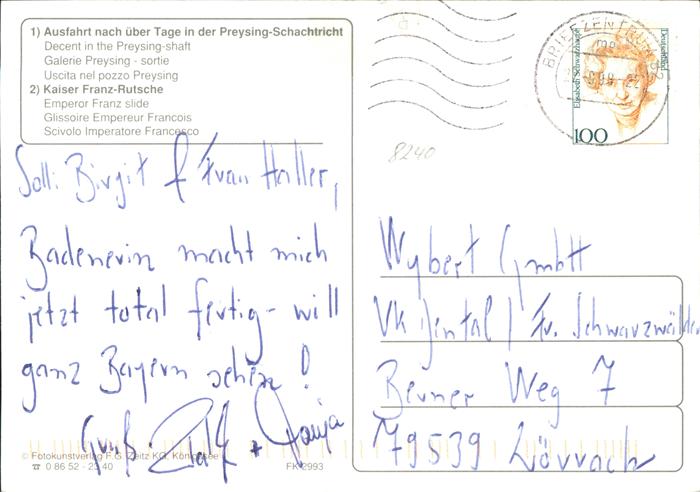 1) Ausfahrt nach über Tage in der Preysing-Schachtricht
Decent in the Preysing-shaft
Galerie Preysing - sortie
Uscita nel pozzo Preysing
2) Kaiser Franz-Rutsche
Emperor Franz slide
Glissoire Empereur Francois
Scivolo Imperatore Francesco
Birgit Haller,
Badenerin macht mich
jetzt total fertig - will
ganz Bayern sehen!
Gruß + Tanja
© Fotokunstverlag F.G. Zeitz KG, Königssee
☎ 0 86 52 - 23 40
FK 2993
BRIEFZENTRUM
Elisabeth Schwarzhaupt
Deutschland
100
8240
Wybert GmbH
VK Dental / Fr. Schwarzwälder
Berner Weg 7
79539 Lörrach